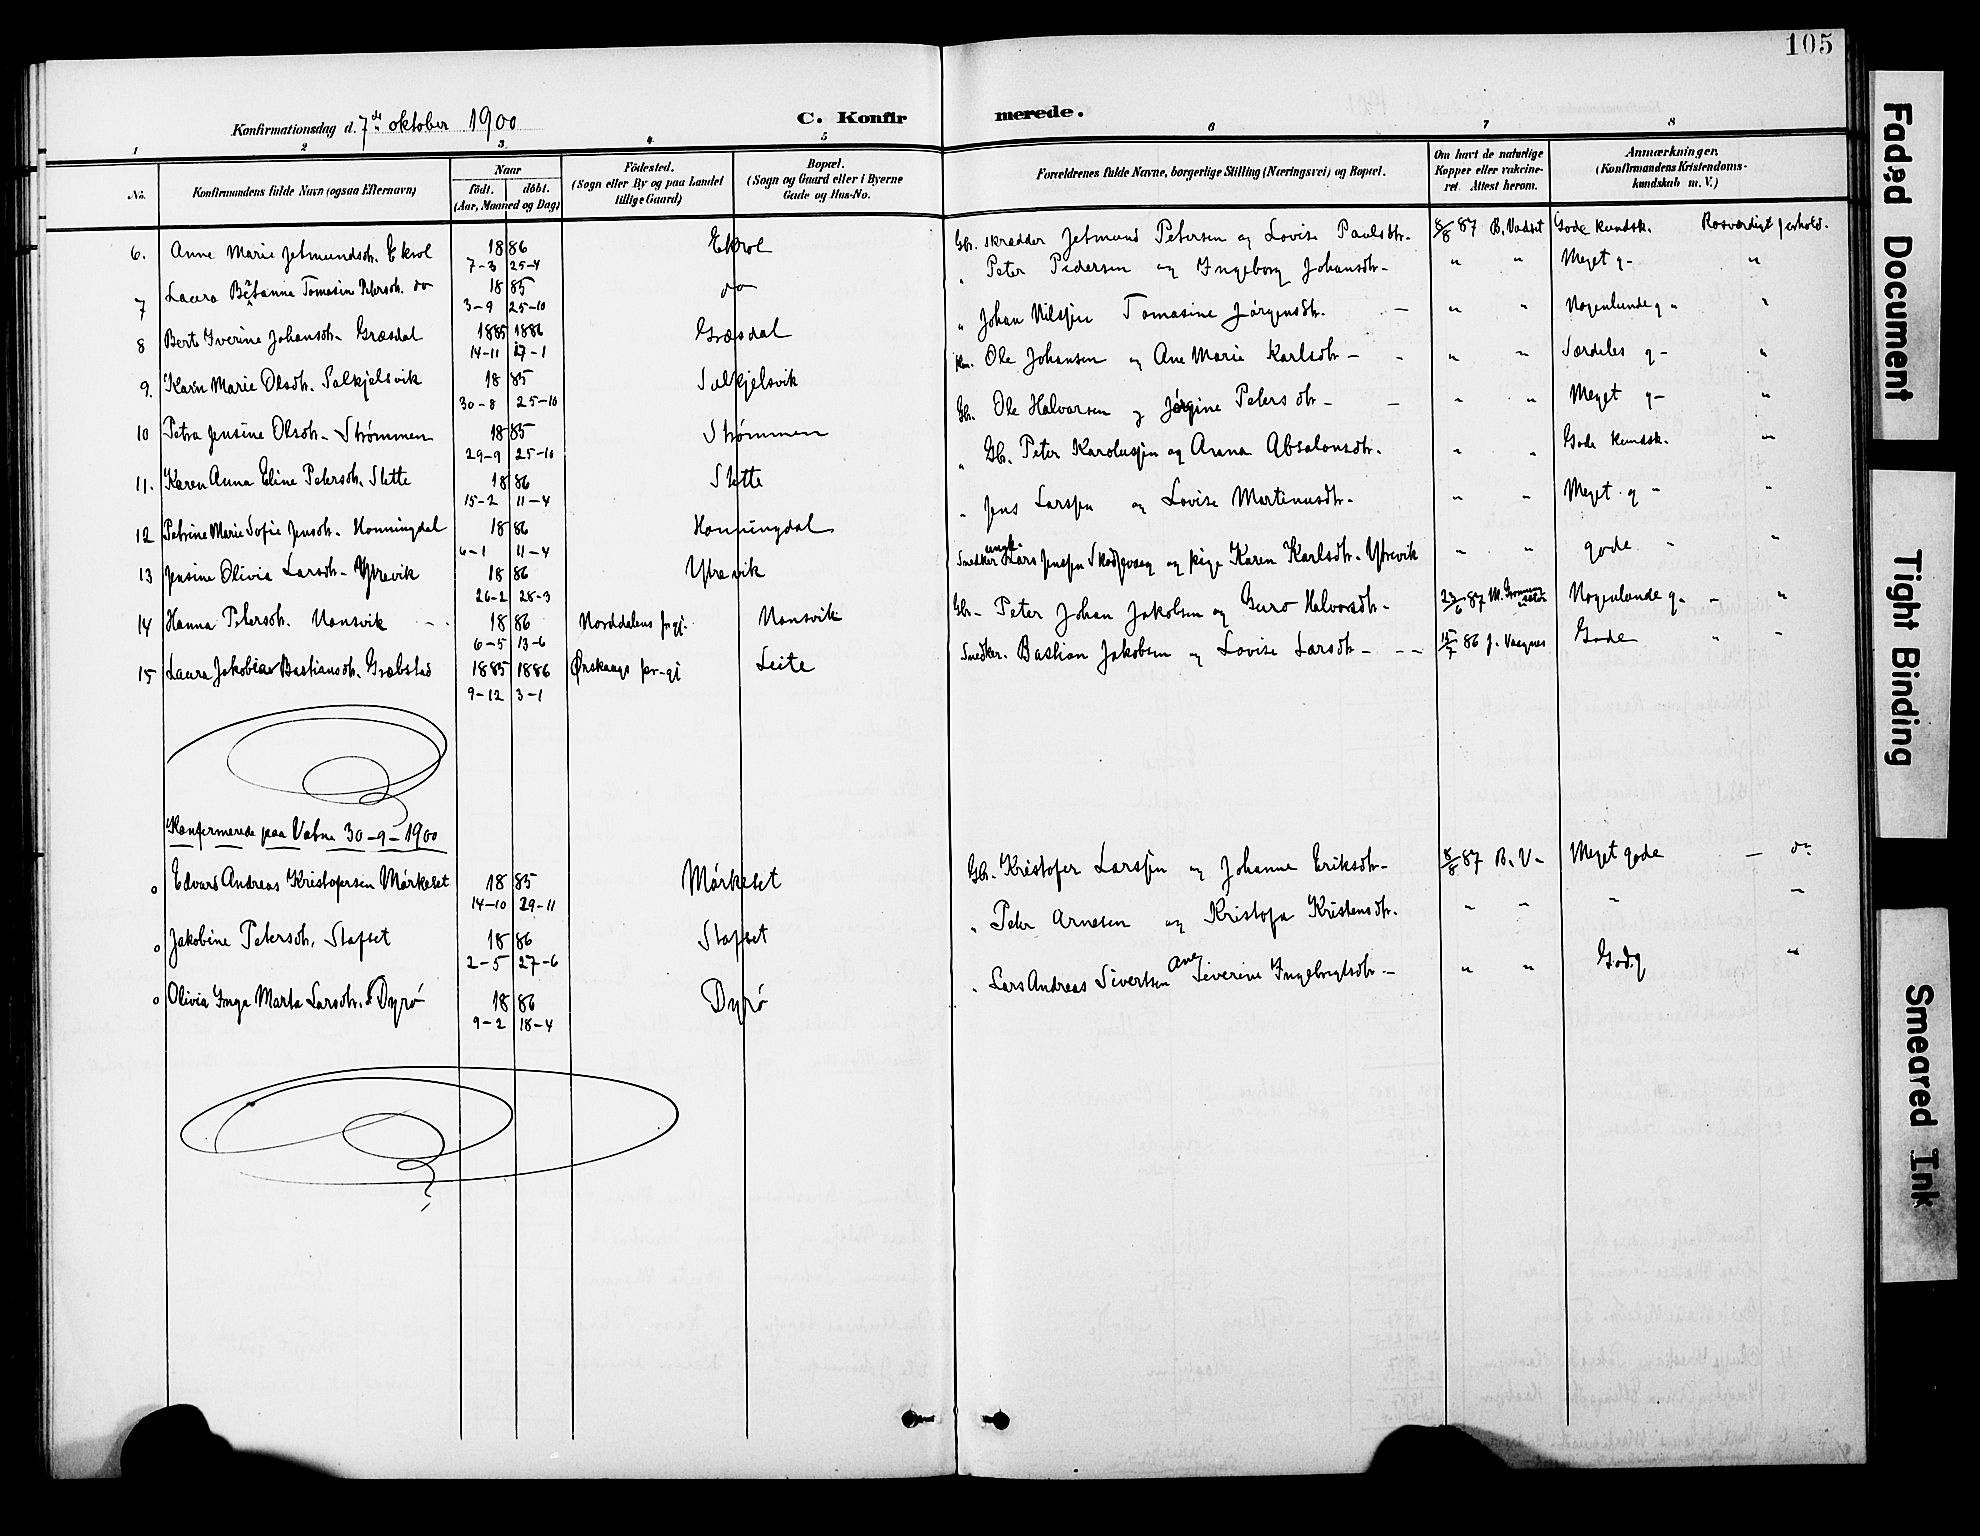 105
Konfirmationsdag d. 7de oktober 1900
C. Konfirmerede.
1 2 3 4 5 6 7 8
No.
Konfirmandens fulde Navn (ogsaa Efternavn)
Naar
födt. döbt.
(Aar, Maaned og Dag)
Födested.
(Sogn eller By og paa Landet
tillige Gaard)
Bopæl.
(Sogn og Gaard eller i Byerne
Gade og Hus-No.
Forældrenes fulde Navne, borgerlige Stilling (Næringsvei) og Bopæl.
Om havt de naturlige
Kopper eller vakcine-
ret. Attest herom.
Anmærkninger,
(Konfirmandens Kristendoms-
kundskab m. V.)
6. Anne Marie Jetmundsdtr. Ekrol 1886 Ekrol Gbr. skrædder Jetmund Petersen og Lovise Paulsdtr. 8/8 87 B. Vadset Gode kundsk. Rosværdigt forhold.
7-3 25-4
7 Laura Betanna Tomasin Petersdtr. do 1885 do " Peter Pedersen og Ingeborg Johansdtr - " " Meget g- "
3-9 25-10
8 Bert Iverine Johansdtr. Græsdal 1885 1886 Græsdal " Johan Nilssen Tomasine Jørgensdtr. - " " Nogenlunde g " "
14-11 17-1
9. Karn Marie Olsdtr. Solkjelsvik 1885 Solkjelsvik Ole Johansen og Ane Marie Karlsdtr - - " " Særdeles g- "
30-8 25-10
10 Petra Jensine Olsdtr. Strømmen 1885 Strømmen Gbr. Ole Halvorsen g Jørgine Petersdtr - - " " Meget g- "
29-9 25-10
11. Karen Anna Eline Petersdtr. Slette 1886 Slette " Gbr. Peter Karolussen og Anna Absalonsdtr. " " Gode kundsk. "
15-2 11-4
12 Petrine Marie Sofie Jensdtr. Honningdal 1886 Honningdal " Jens Larssen og Lovise Martinusdtr - " " Meget g - "
6-1 11-4
13 Jensine Olivia Larsdtr - Ytrevik 1886 Ytrevik Snedker ungk. Lars Jenssen Skodjevaag og pige Karen Karlsdtr. Ytrevik " " gode " "
26-2 28-3
14 Hanna Petersdtr. Nonsvik 1886 Norddalens prgj. Nonsvik Gbr - Peter Johan Jakobsen og Guro Halvorsdtr - 23/6 87 Nogenlunde g- - "
6-5 13-6
15 Laura Jakobia Bastiansdtr. Græbstad 1885 1886 Ørskougs pr-gj Leite Snedker. Bastian Jakobsen og Lovise Larsdtr - - - 15/7 86 J. Vaagnes Gode " "
9-12 3-1
Konfirmerede paa Vatne 30-9-1900
o Edvard Andreas Kristofersen Mørkeset 1885 Mørkeset Gbr. Kristofer Larssen og Johanne Eriksdtr - 8/8 87 B. V- Meget gode - do
14-10 29-11
o Jakobine Petersdtr. Stafset 1886 Stafset " Peter Arnesen og Kristofa Kristensdtr. " " " "
2-5 27-6
o Olivia Inga Marta Larsdtr. Dyrø 1886 Dyrø " Lars Andreas Sivertsen Ane Severine Ingebrigtsdtr - " " "
9-2 18-4
Faded Document
Tight Binding
Smeared Ink